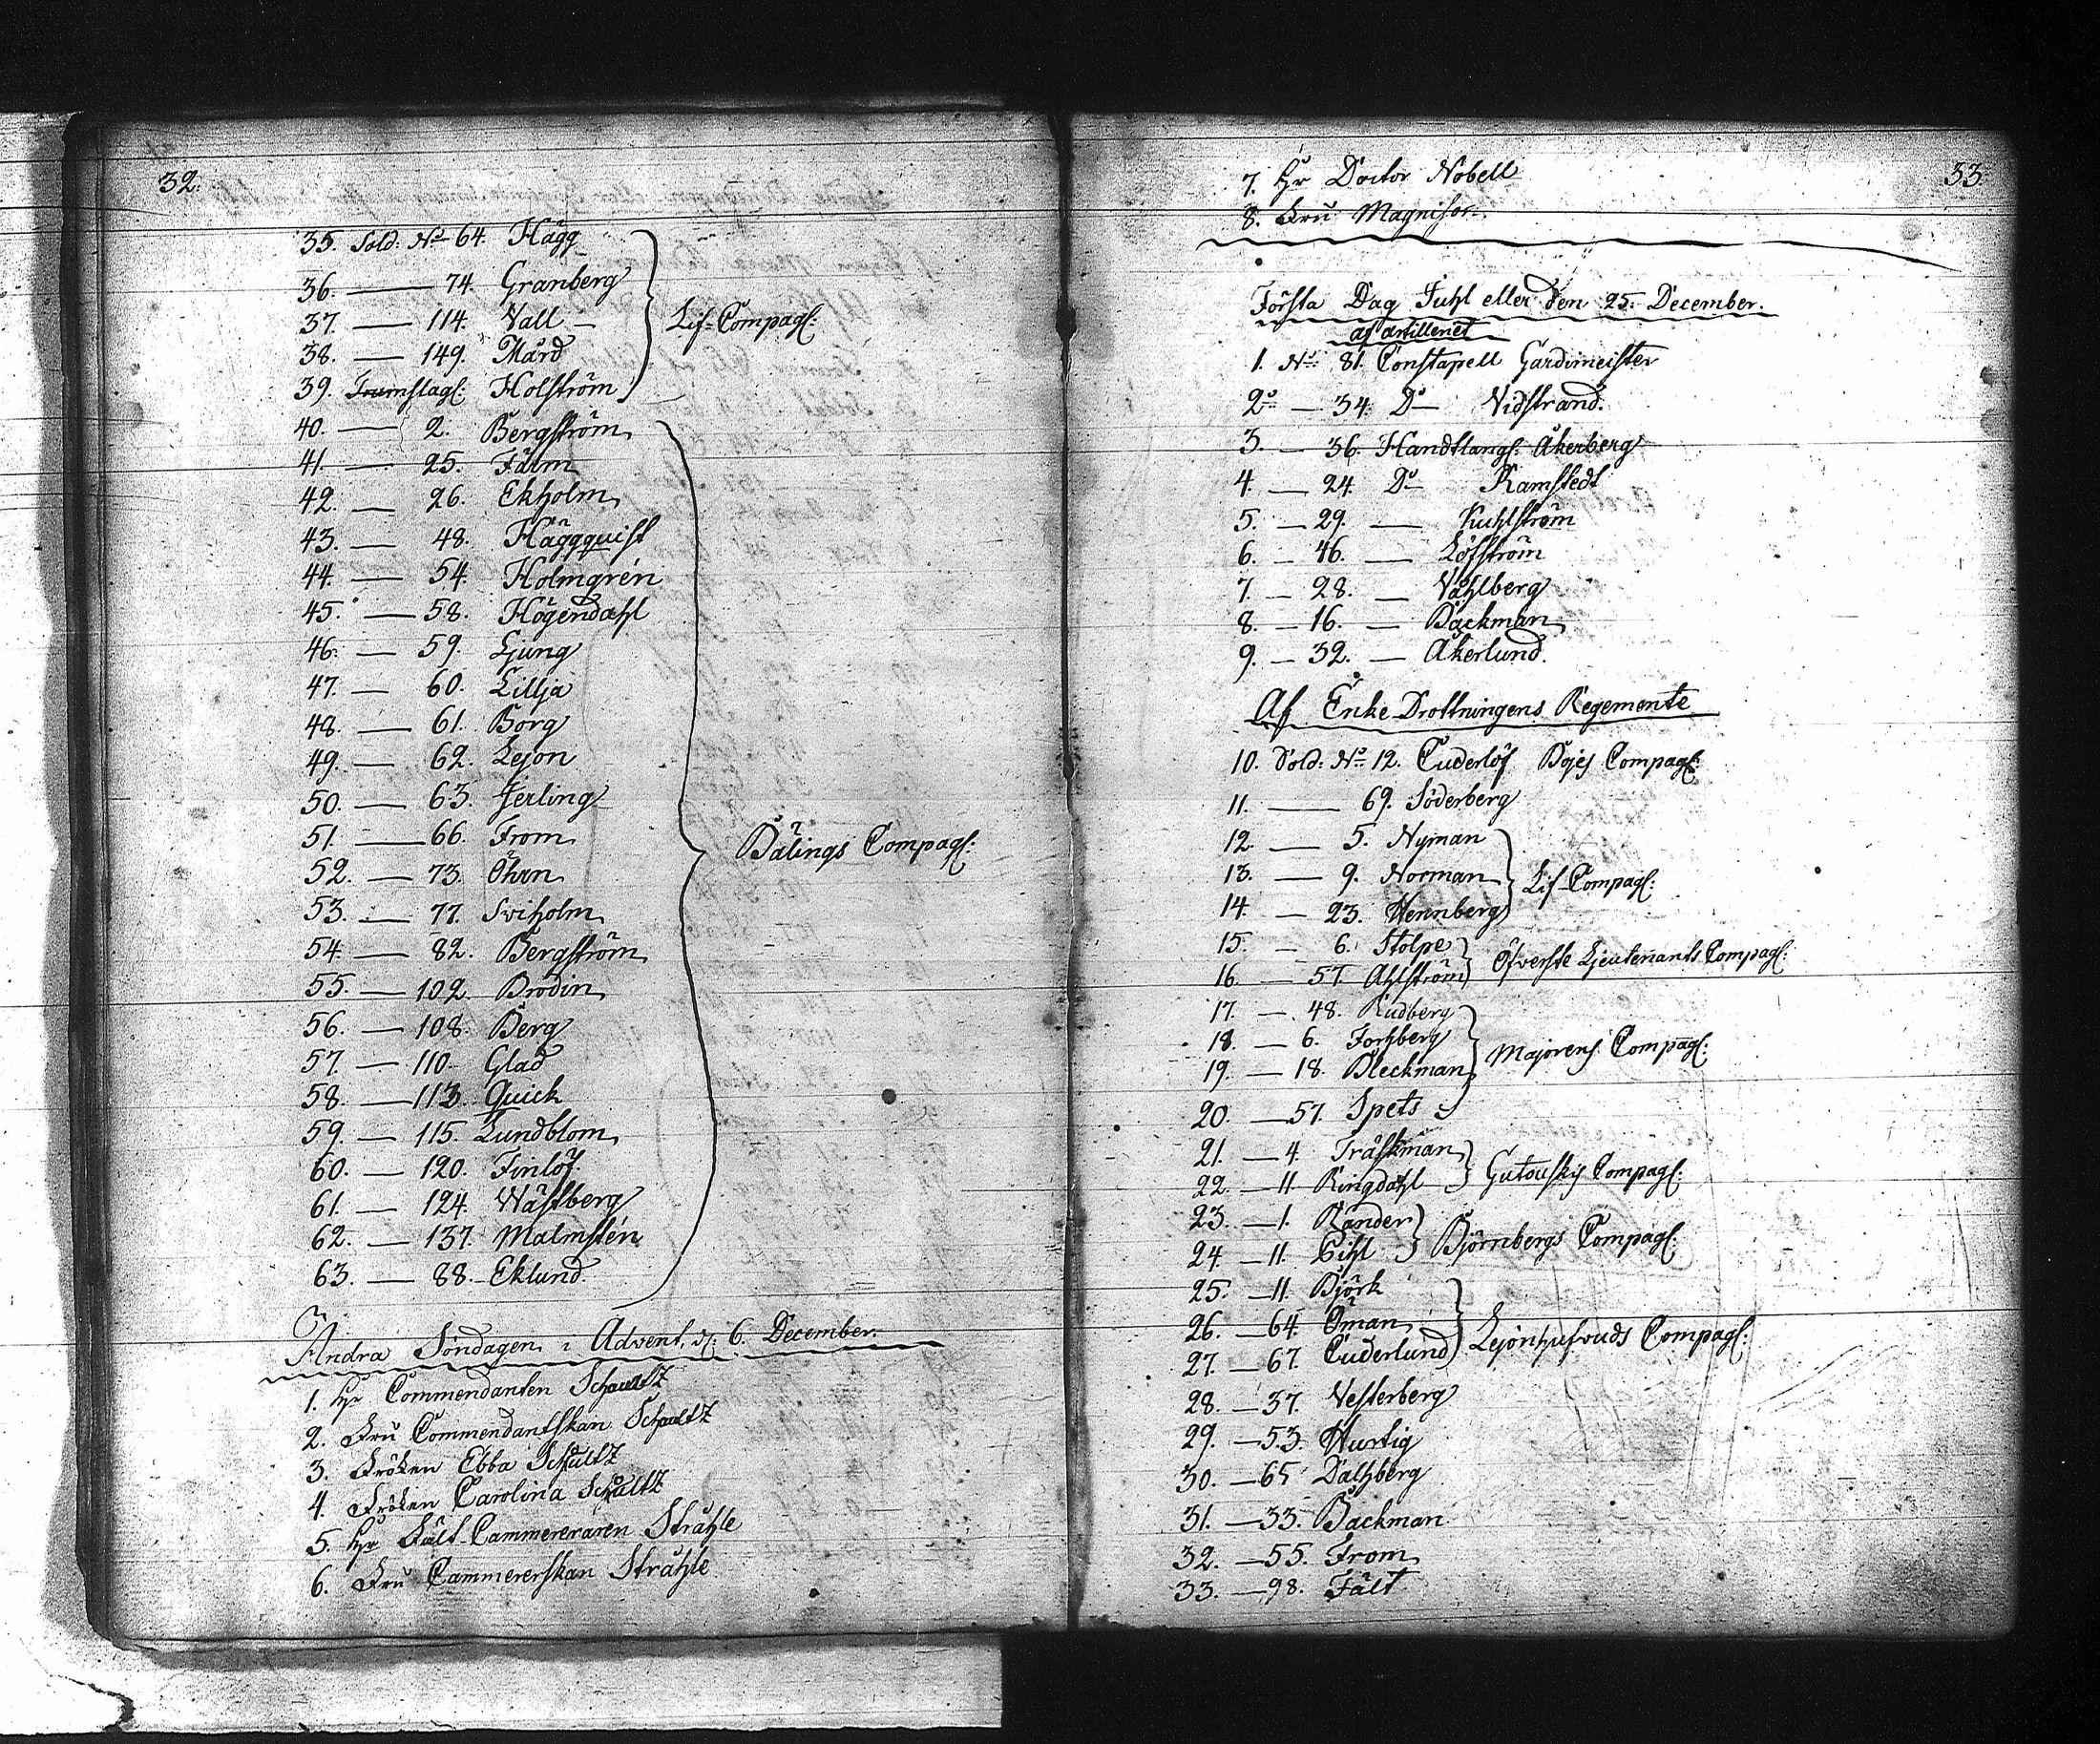 32.
35. Sold: No 64. Hägg
36. — 74. Granberg
37. — 114. Vall —
38. — 149. Mård
Lif-Compagn:
39. Trumslag: Holström
40. — 2. Bergström
41. — 25. Fälm
42. — 26. Ekholm
43. — 48. Häggquist
44. — 54. Holmgrén
45. — 58. Högendahl
46. — 59. Ljung
47. — 60. Lillja
48. — 61. Borg
49. — 62. Lejon
50. — 63. Jerling
51. — 66. From
52. — 73. Öhrn
Bälings Compagn:
53. — 77. Sviholm
54. — 82. Bergström
55. — 102. Brodin
56. — 108. Berg
57. — 110. Glad
58. — 113. Quick
59. — 115. Lundblom
60. — 120. Finlöf
61. — 124. Wästberg
62. — 137. Malmstén
63. — 88. Eklund
Andra Söndagen i Advent, d: 6. December.
1. Hr Commendanten Schaultz
2. Fru Commendantskan Schaultz
3. Fröken Ebba Schultz
4. Fröken Carolina Schultz
5. Hr Fält-Cammereraren Stråhle
6. Fru Cammererskan Stråhle
33.
7. Hr Doctor Nobell
8. Fru Magnison.
Första Dag Juhl eller den 25. December.
af artilleriet
1. No 81. Constapell Gardimeister
2. — 34. Do — Vidstrand.
3. — 36. Handtlang: Åkerberg
4. — 24. Do — Ramstedt
5. — 29. — Kuhlström
6. — 46. — Löfström
7. — 28. — Vahlberg
8. — 16. — Backman
9. — 32. — Åkerlund.
Af Enke Drottningens Regemente
10. Sold: No 12. Cuderlöf Bojes Compagn:
11. — 69. Söderberg
12. — 5. Nyman
13. — 9. Norman
Lif-Compagn:
14. — 23. Wennberg
15. — 6. Stolpe
Öfverste Lieutenants Compagn:
16. — 57. Ahlström
17. — 48. Rudberg
18. — 6. Forsberg
Majorens Compagn:
19. — 18. Bleckman
20. — 57. Spets
21. — 4. Träskman
Gutouskys Compagn:
22. — 11 Ringdahl
23. — 1. Rander
Björnbergs Compagn:
24. — 11. Gihl
25. — 11. Björk
26. — 64. Öman
Lejonhufvuds Compagn:
27. — 67. Cuderlund
28. — 37. Vesterberg
29. — 53. Hurtig
30. — 65 Dahlberg
31. — 33. Backman
32. — 55. From
33. — 98. Fält